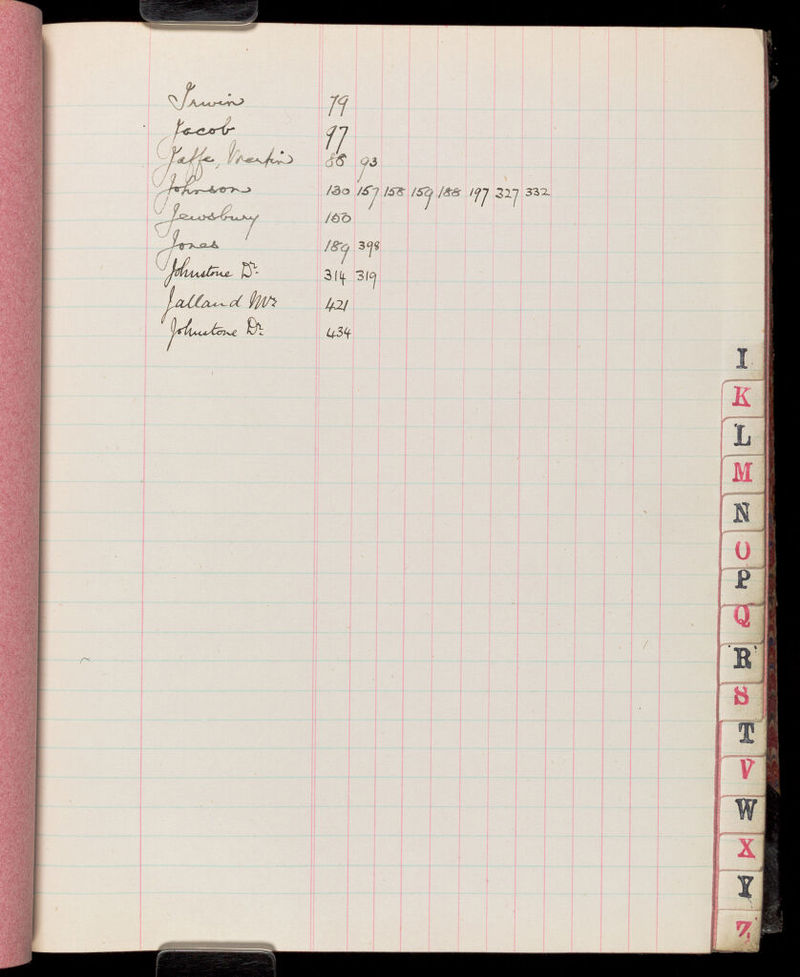 Irwin 79
Jacob 97
Jaffe, Martin 88 93
Johnson 130 157 158 159 188 197 327 332
Jewsbury 160
Jones 189 398
Johnstone Dr. 314 319
Jalland Mr 421
Johnstone Dr. 434
I
K
L
M
N
O
P
Q
R
S
T
V
W
X
Y
Z